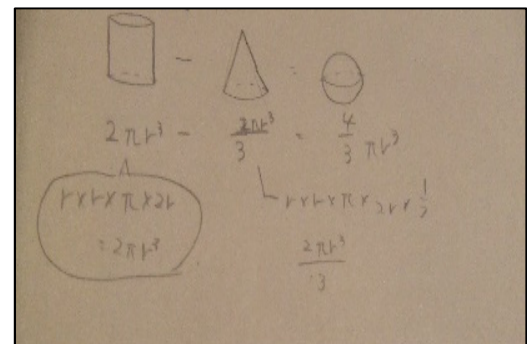 − =
2πr³ − 2πr³/3 = 4/3 πr³
r×r×π×2r
= 2πr³
r×r×π×2r×1/3
2πr³/3